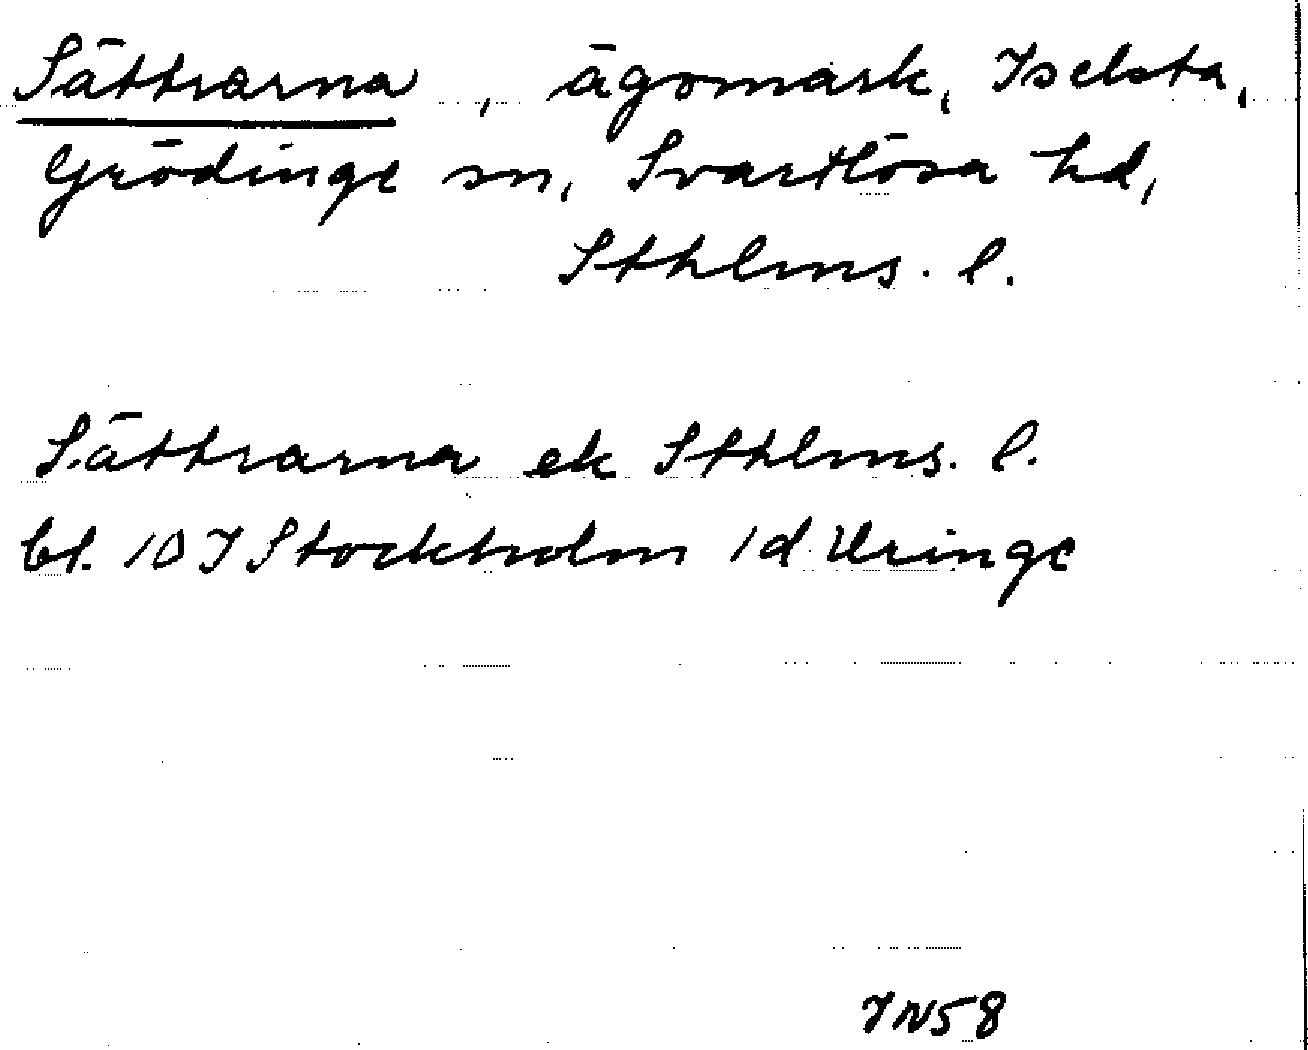 Sättrarna, ägomark, Iselsta,
Grödinge sn, Svartlösa hd,
Sthlms. l.
Sättrarna ek Sthlms. l.
bl. 10 I Stockholm 1d Uringe
IN58